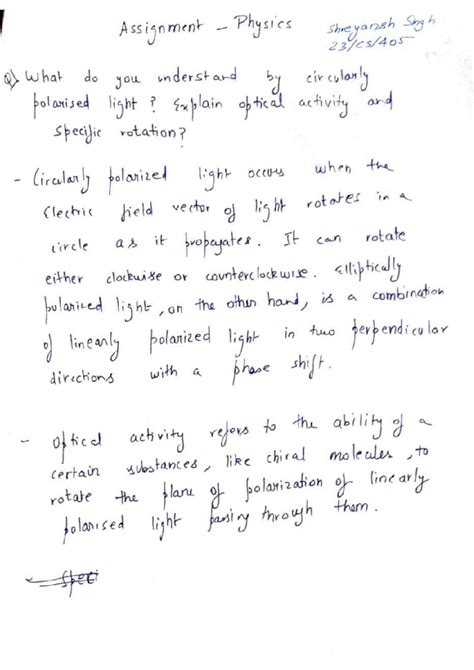 Assignment - Physics
Shreyansh Singh
23/CS/405
Q) What do you understand by circularly
polarised light? Explain optical activity and
Specific rotation?
- Circularly polarized light occurs when the
Electric field vector of light rotates in a
circle as it propagates. It can rotate
either clockwise or counterclockwise. Elliptically
polarized light, on the other hand, is a combination
of linearly polarized light in two perpendicular
directions with a phase shift.
- Optical activity refers to the ability of a
certain substances, like chiral molecules, to
rotate the plane of polarization of linearly
polarised light passing through them.
- Speci